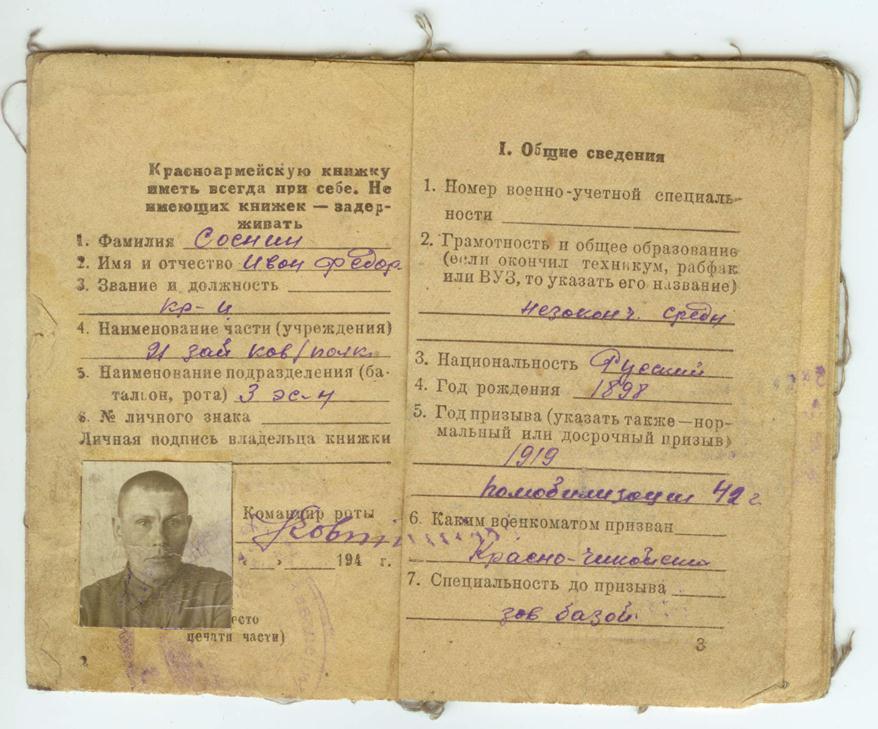 Красноармейскую книжку
иметь всегда при себе. Не
имеющих книжек — задер-
живать
1. Фамилия Соснин
2. Имя и отчество Иван Федор
3. Звание и должность
кр-ц
4. Наименование части (учреждения)
21 зап кав/полк
5. Наименование подразделения (ба-
тальон, рота) 3 эс-н
6. № личного знака
Личная подпись владельца книжки
Командир роты
194 г.
есто
печати части)
2
I. Общие сведения
1. Номер военно-учетной специаль-
ности
2. Грамотность и общее образование
(если окончил техникум, рабфак
или ВУЗ, то указать его название)
незаконч. средн
3. Национальность Русский
4. Год рождения 1898
5. Год призыва (указать также—нор-
мальный или досрочный призыв)
1919
помобилизации 42 г.
6. Каким военкоматом призван
Красно-Чикойски
7. Специальность до призыва
зав базой
3